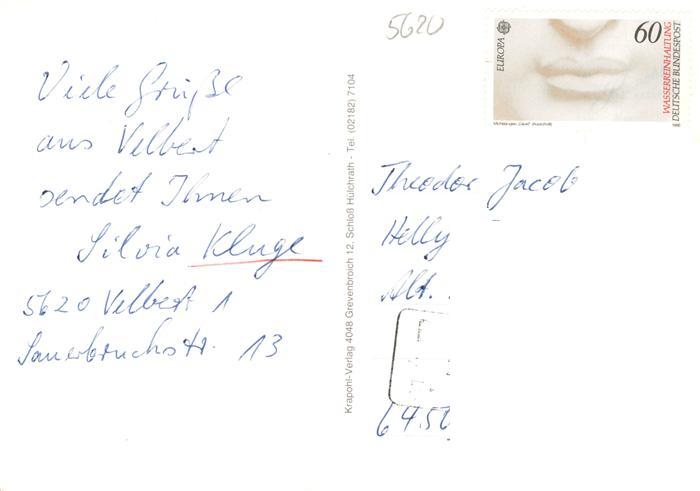 5620
60
EUROPA
WASSERREINHALTUNG
DEUTSCHE BUNDESPOST
Viele Grüße
aus Velbert
sendet Ihnen
Silvia Kluge
5620 Velbert 1
Sauerbruchstr. 13
Krapohl-Verlag 4048 Grevenbroich 12, Schloß Hülchrath - Tel. (02182) 7104
Theodor Jacob
Helly
Alt.
6450